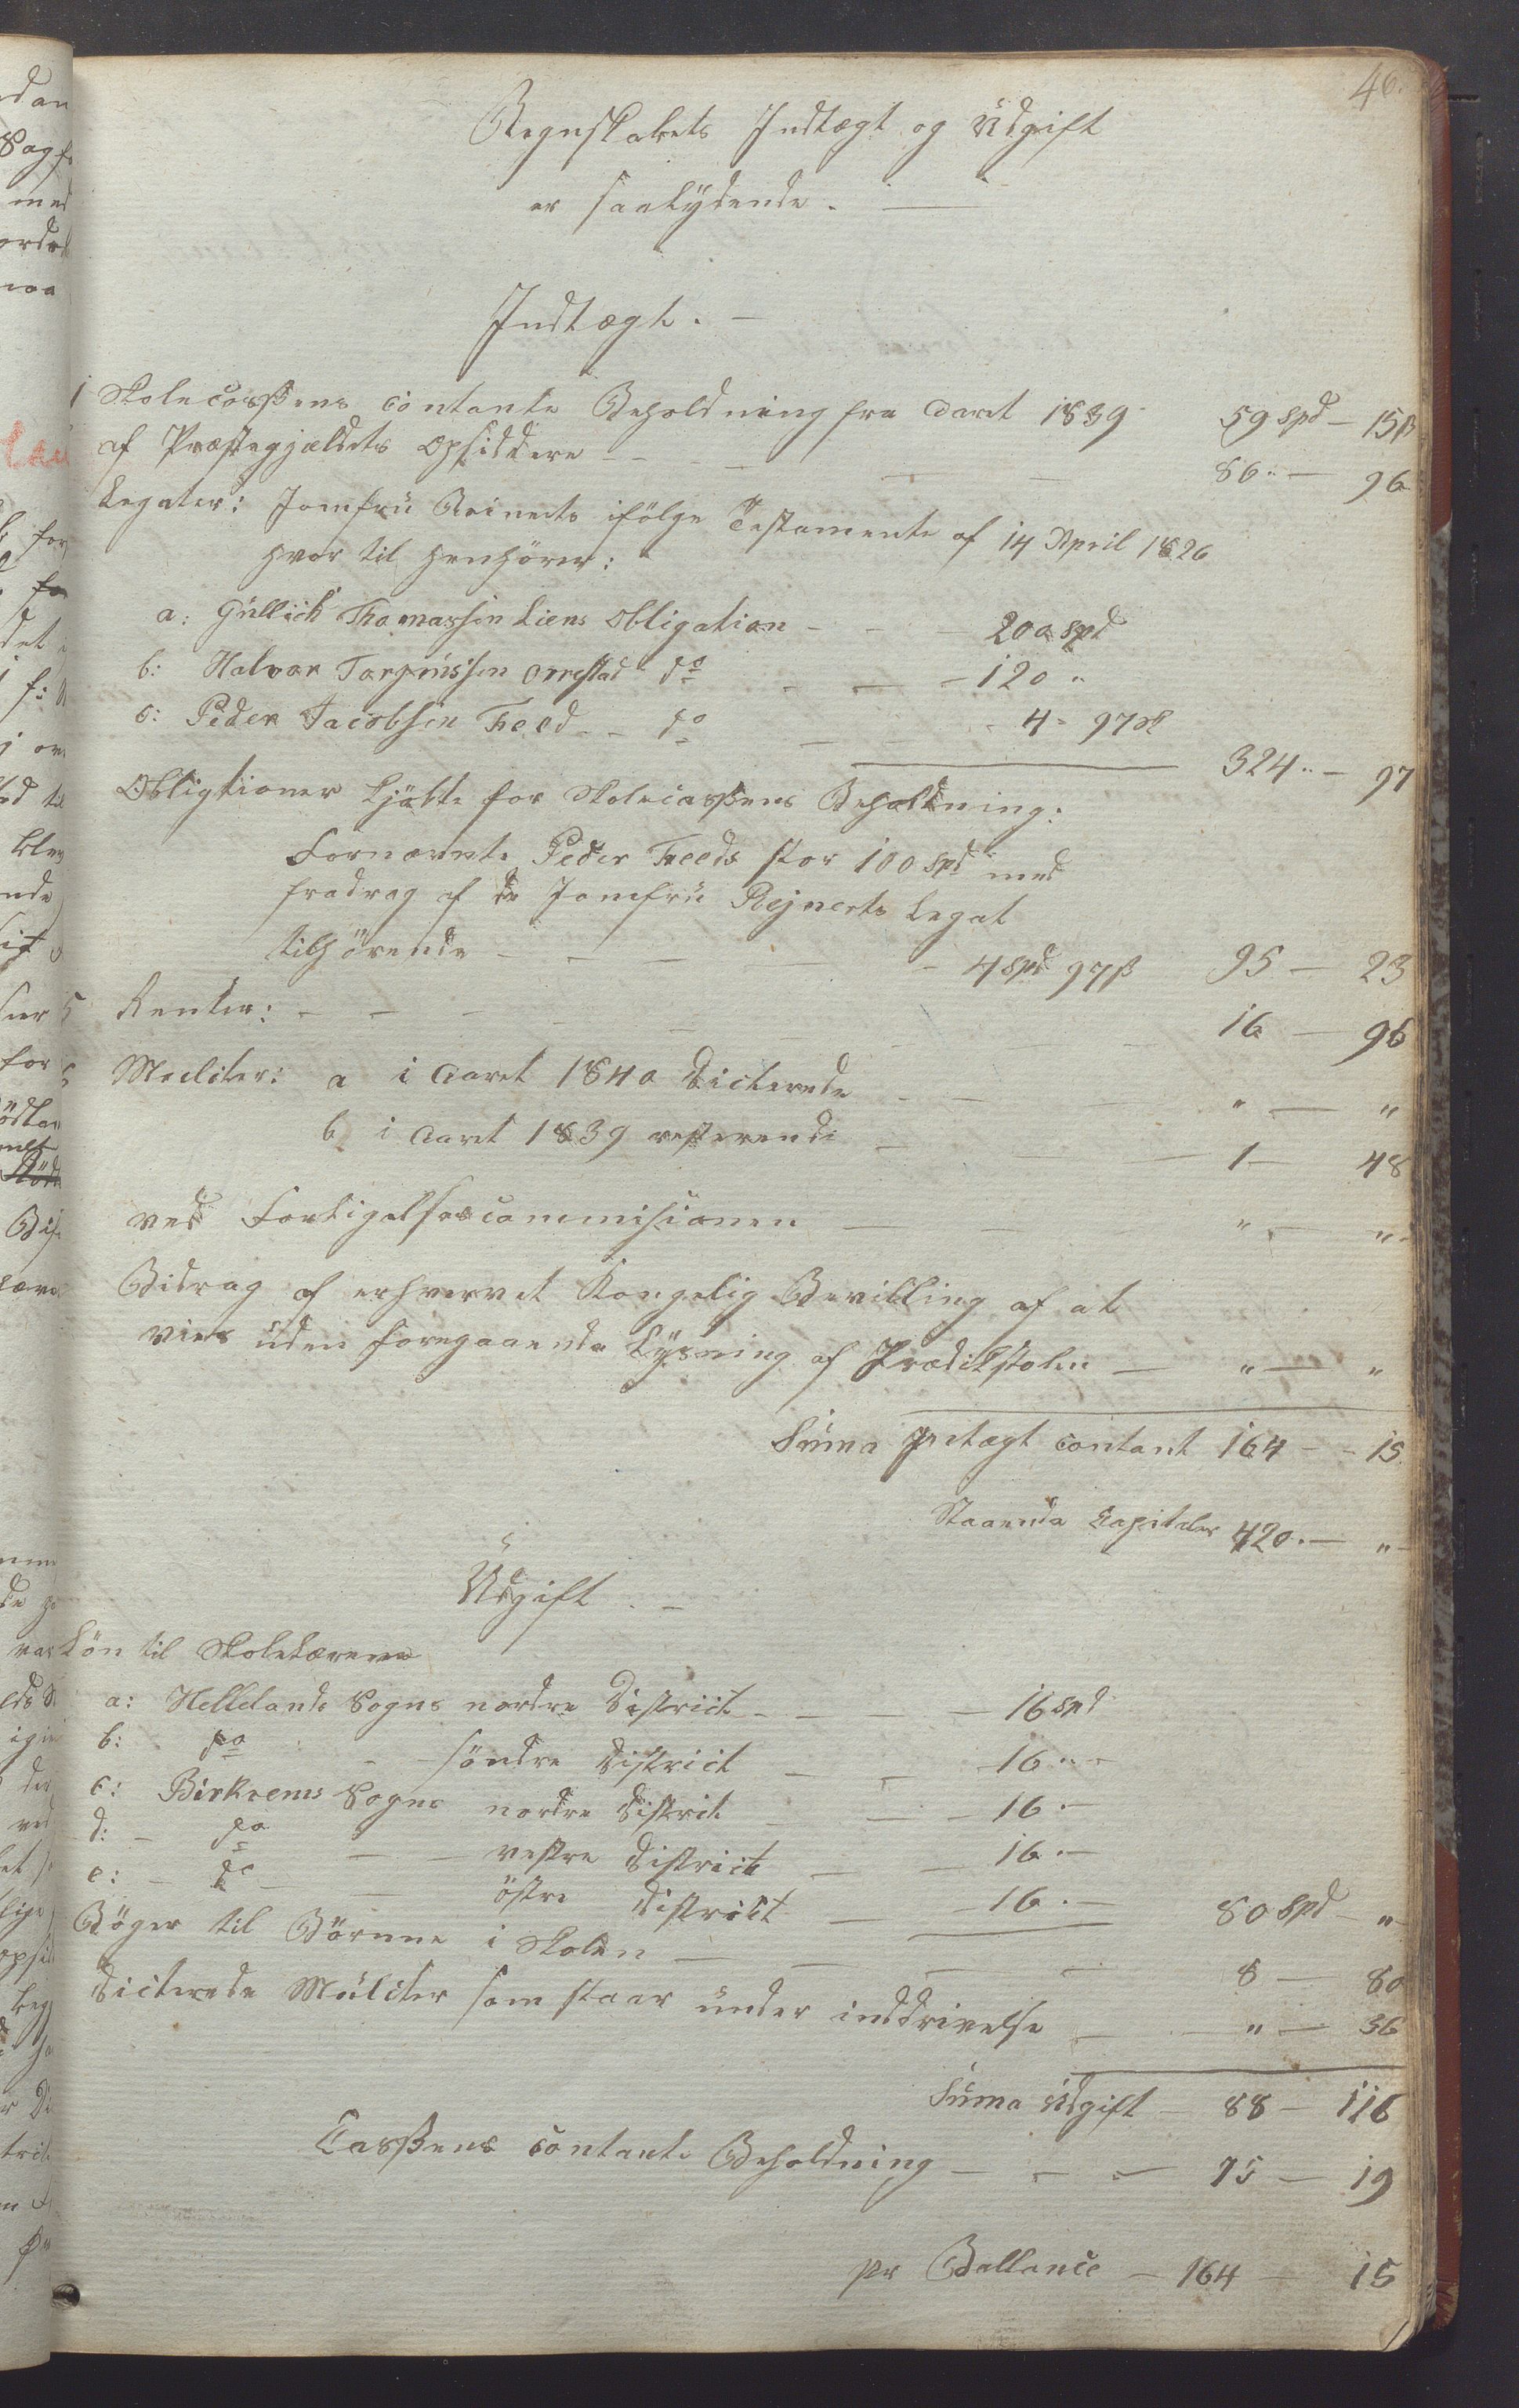 46.
Regnskabets Indtægt og Udgift
er saalydende. —
Indtægt. —
1 Skolecassens contante Beholdning fra Aaret 1839 59 Spd — 15 ß
af Præstegjældets Opsiddere — — 86 " — 96
Legater: Jomfrü Reinerts ifölge Testamente af 14 April 1826
hvor til henhörer:
a: Güllich Thomassen Liens Obligation — — 200 Spd
b: Halvor Torgrimssen Orrestad do — — 120 "
c: Peder Jacobsen Feed — do — 4 - 97 ß
324 " — 97
Obligtioner kjöbte for Skolecassens Beholdning:
Fornævnte Peder Feeds stor 100 Spd med
fradrag af de Jomfrü Rejnerts Legat
tilhörende — — — 4 Spd 97 ß 95 — 23
5 Renter: — — — 16 — 96
Mulcter: a i Aaret 1840 dicterede — — " — "
b i Aaret 1839 resterende — — 1 — 48
ved Forligelsescommisionen — — " — "
Bidrag af erhvervet Kongelig Bevilling af at
vies üden foregaaende Lysning af Prædikstolen — " — "
Süma Intægt contant 164 - - 15.
Staaende Capitaler 420. — "
Udgift. —
Lön til Skolelærerne
a: Hellelands Sogns nordre District — — 16 Spd
b: do — söndre District — — 16 "
c: Birkrems Sogns nordre Distrit — — 16 —
d: — do — — vestre District — — 16 —
e: — do — — östre District — — 16 — 80 Spd — "
Böger til Börnne i Skolen — — — 8 — 80
Dicterede Mülcter som staar ünder inddrivelse — " — 36
Süma Udgift — 88 — 116
Cassens contante Beholdning — — — 75 — 19
pr Ballance — 164 — 15